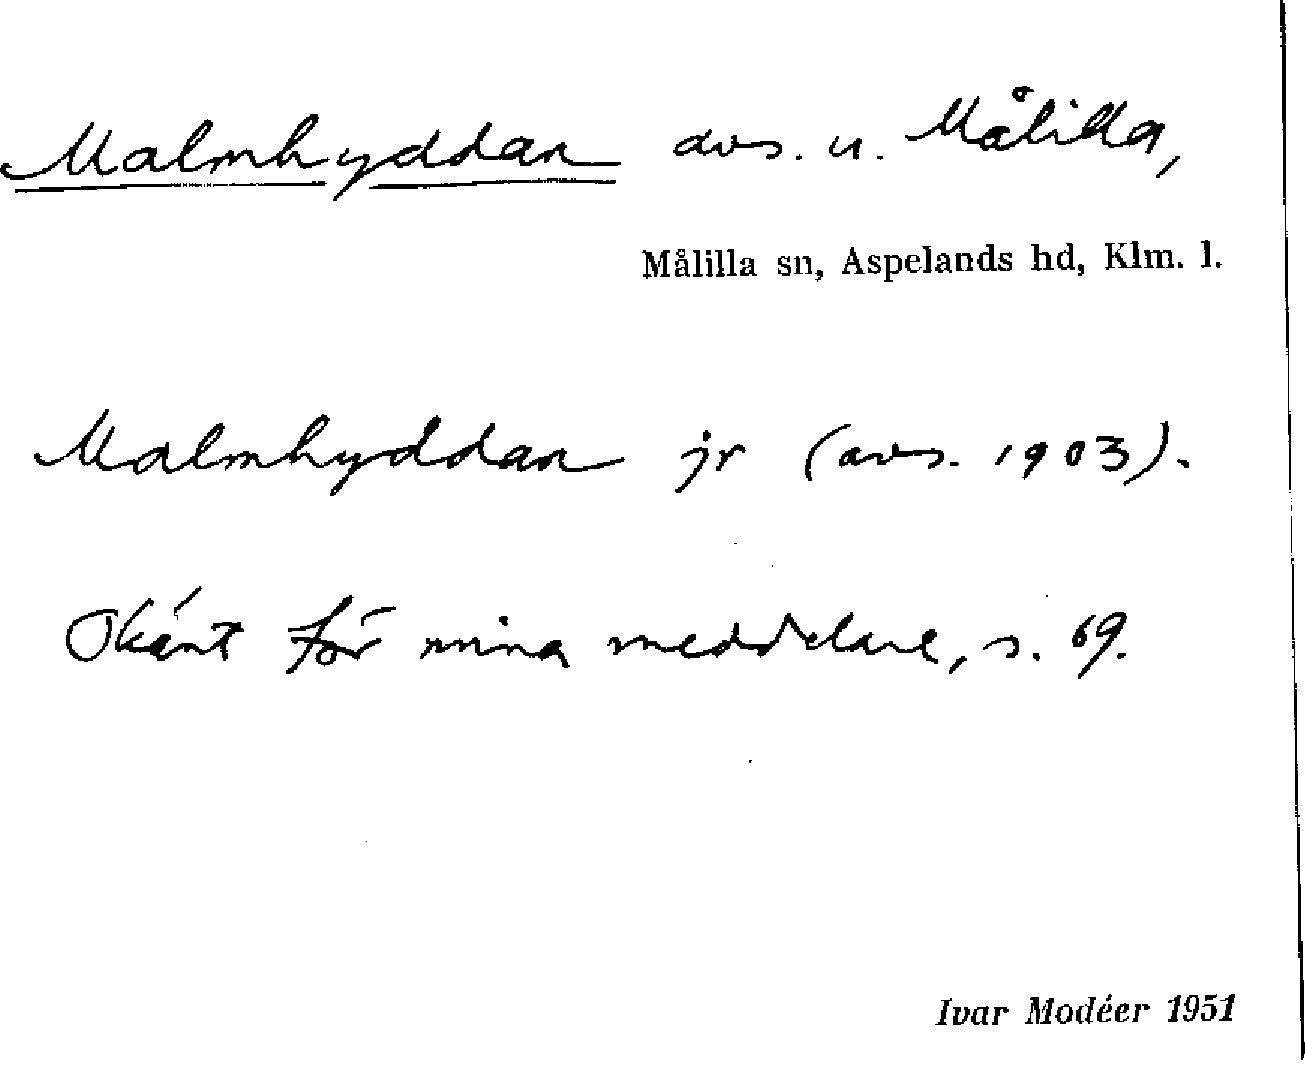 Malmhyddan avs. u. Målilla,
Målilla sn, Aspelands hd, Klm. l.
Malmhyddan jr (avs. 1903).
Okänt för mina meddelare, s. 69.
Ivar Modéer 1951